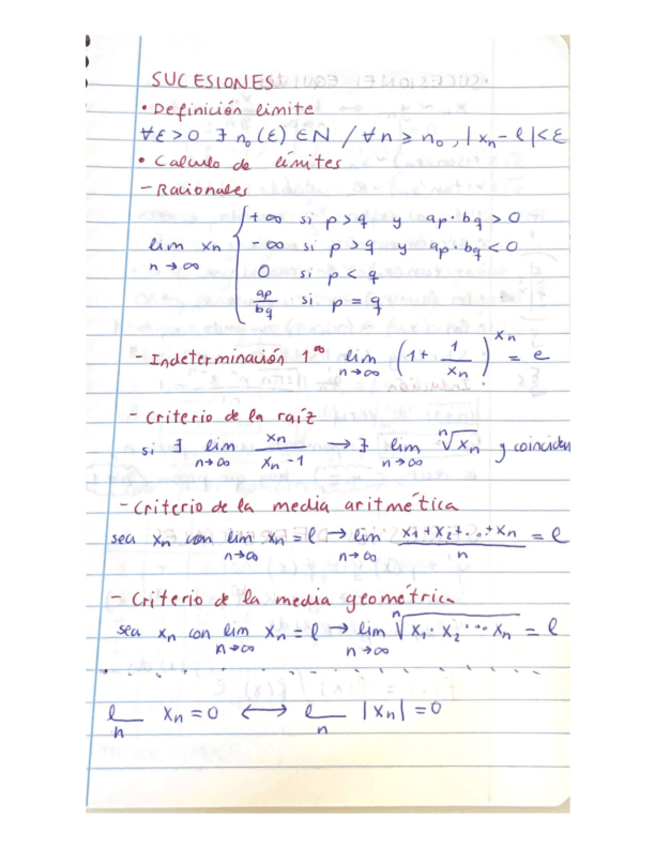 SUCESIONES
• Definición limite
∀ε>0 ∃ n₀(ε) ∈ N / ∀n ≥ n₀, |xₙ - l| < ε
• Calculo de límites
- Racionales
lim xₙ n→∞ { +∞ si p>q y ap·bq > 0
-∞ si p>q y ap·bq < 0
0 si p<q
ap/bq si p = q
- Indeterminación 1^∞ lim n→∞ (1 + 1/xₙ)^xₙ = e
- Criterio de la raíz
si ∃ lim n→∞ xₙ/xₙ-1 → ∃ lim n→∞ ⁿ√xₙ y coinciden
- Criterio de la media aritmética
sea xₙ con lim n→∞ xₙ = l → lim n→∞ x₁+x₂+...+xₙ/n = l
- Criterio de la media geométrica
sea xₙ con lim n→∞ xₙ = l → lim n→∞ ⁿ√x₁·x₂···xₙ = l
l n xₙ = 0 ⟷ l n |xₙ| = 0